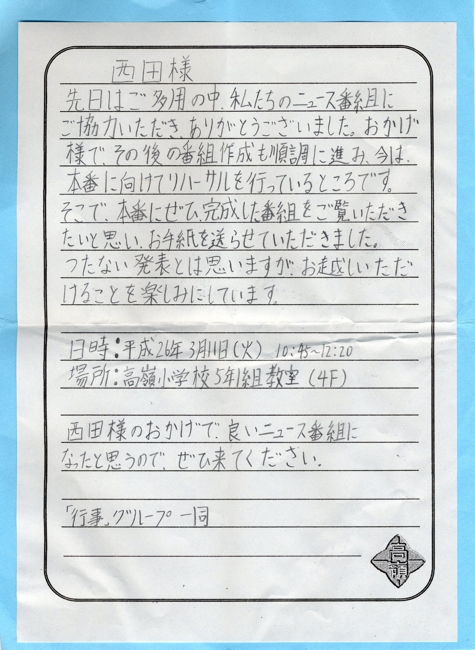 西田様
先日はご多用の中、私たちのニュース番組に
ご協力いただき、ありがとうございました。おかげ
様で、その後の番組作成も順調に進み、今は、
本番に向けてリハーサルを行っているところです。
そこで、本番にぜひ、完成した番組をご覧いただき
たいと思い、お手紙を送らせていただきました。
つたない発表とは思いますが、お越しいただ
けることを楽しみにしています。
日時:平成26年3月11日(火) 10:45~12:20
場所:高嶺小学校5年1組教室(4F)
西田様のおかげで、良いニュース番組に
なったと思うので、ぜひ来てください。
「行事」グループ一同
高嶺